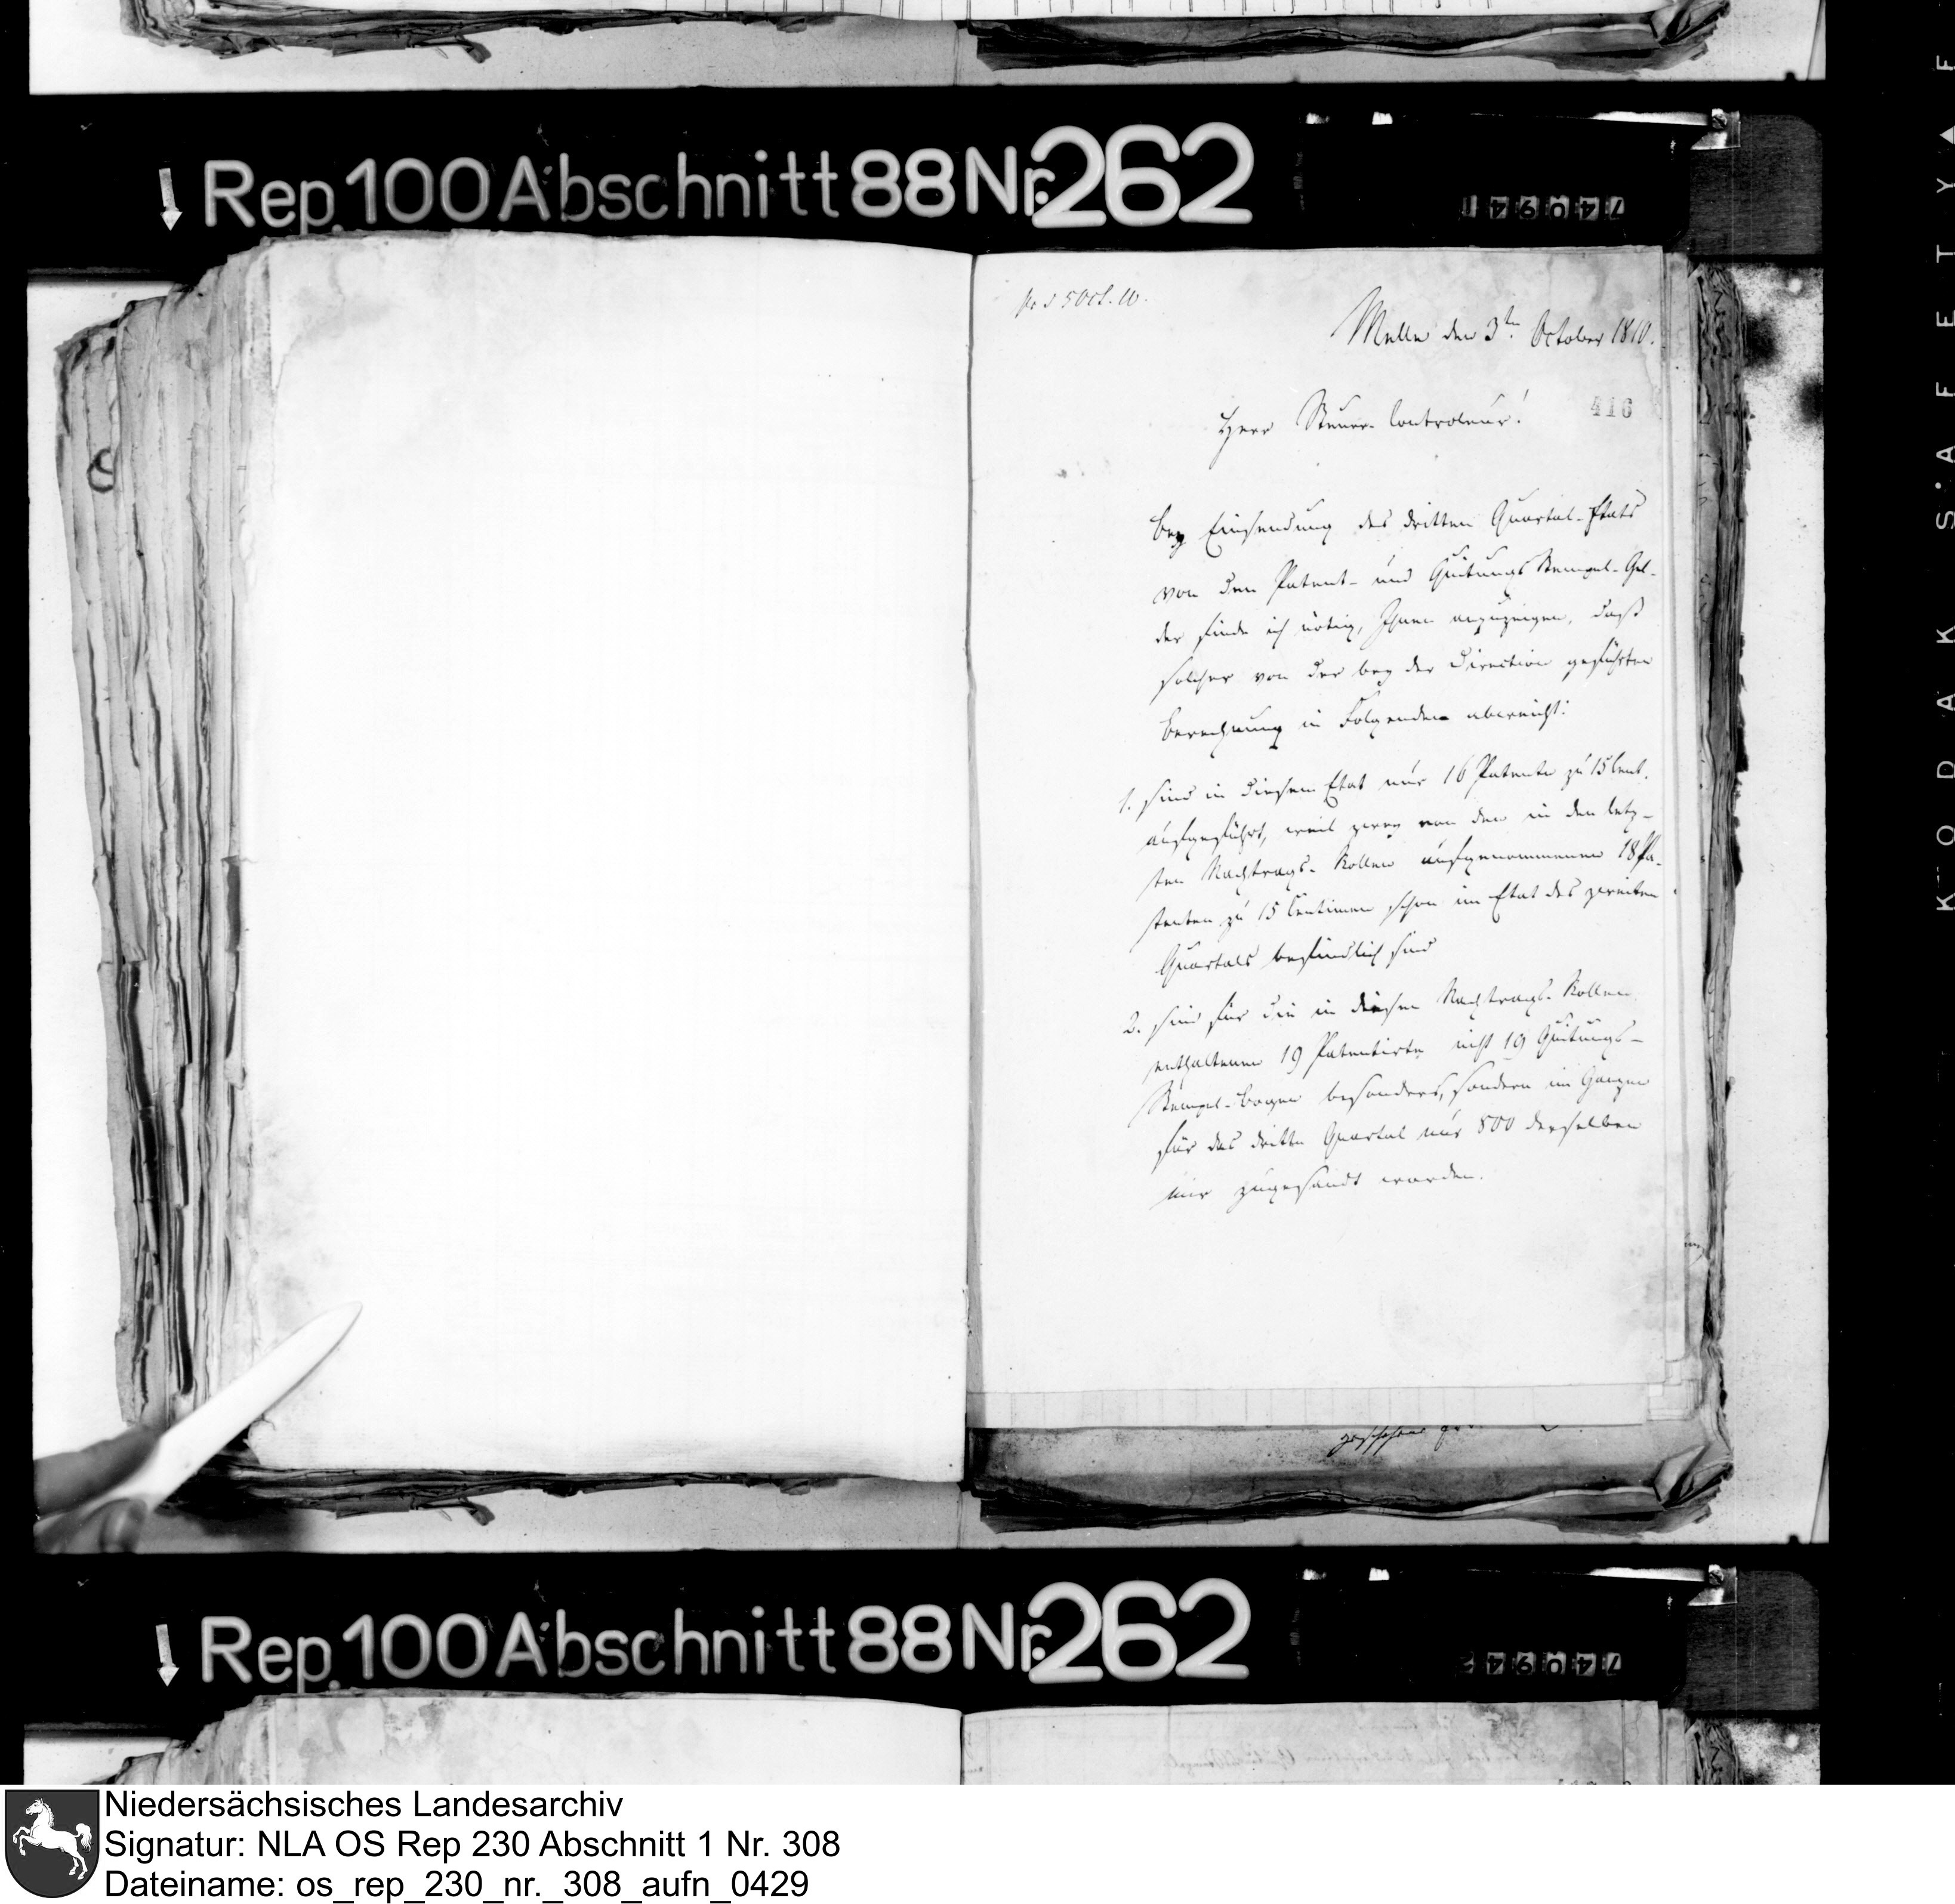 Rep. 100 Abschnitt 88 Nr. 262
pr d 5 Oct. 10.
Melle den 3ten October 1810.
416
Herr Steuer-Controleur!
Bey Einsendung des dritten Quartal-Etats
von den Patent- und Quitungs Stempel-Gel-
der finde ich nötig, Ihnen anzuzeigen, daß
solcher von der bey der Direction geführten
Berechnung in Folgenden abweicht:
1. sind in diesem Etat nur 16 Patente zu 15 Cent.
aufgeführt, weil zwey von den in den letz-
ten Nachtrags-Rollen aufgenommenen 18 Pa-
tenten zu 15 Centimen schon im Etat des zweiten
Quartals befindlich sind
2. sind für die in diesen Nachtrags-Rollen
enthaltenen 19 Patentirte nicht 19 Quitungs-
Stempel-Bogen besonders, sondern im Ganzen
für das dritte Quartal nur 800 derselben
mir zugesandt worden.
Rep. 100 Abschnitt 88 Nr. 262
KODAK SAFETY
Niedersächsisches Landesarchiv
Signatur: NLA OS Rep 230 Abschnitt 1 Nr. 308
Dateiname: os_rep_230_nr._308_aufn_0429